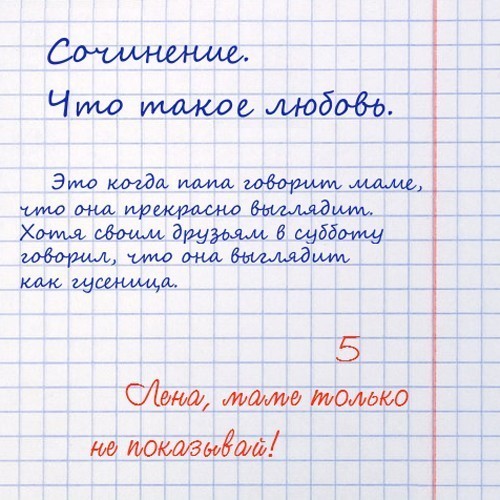 Сочинение.
Что такое любовь.
Это когда папа говорит маме,
что она прекрасно выглядит.
Хотя своим друзьям в субботу
говорил, что она выглядит
как гусеница.
5
Лена, маме только
не показывай!